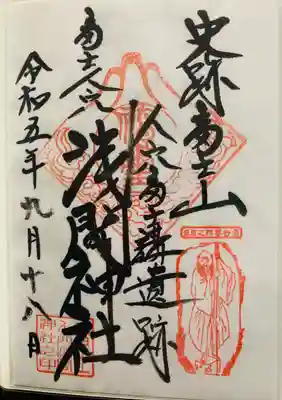 史跡富士山
人穴富士講遺跡
富士人穴
浅間神社
令和五年九月十八日